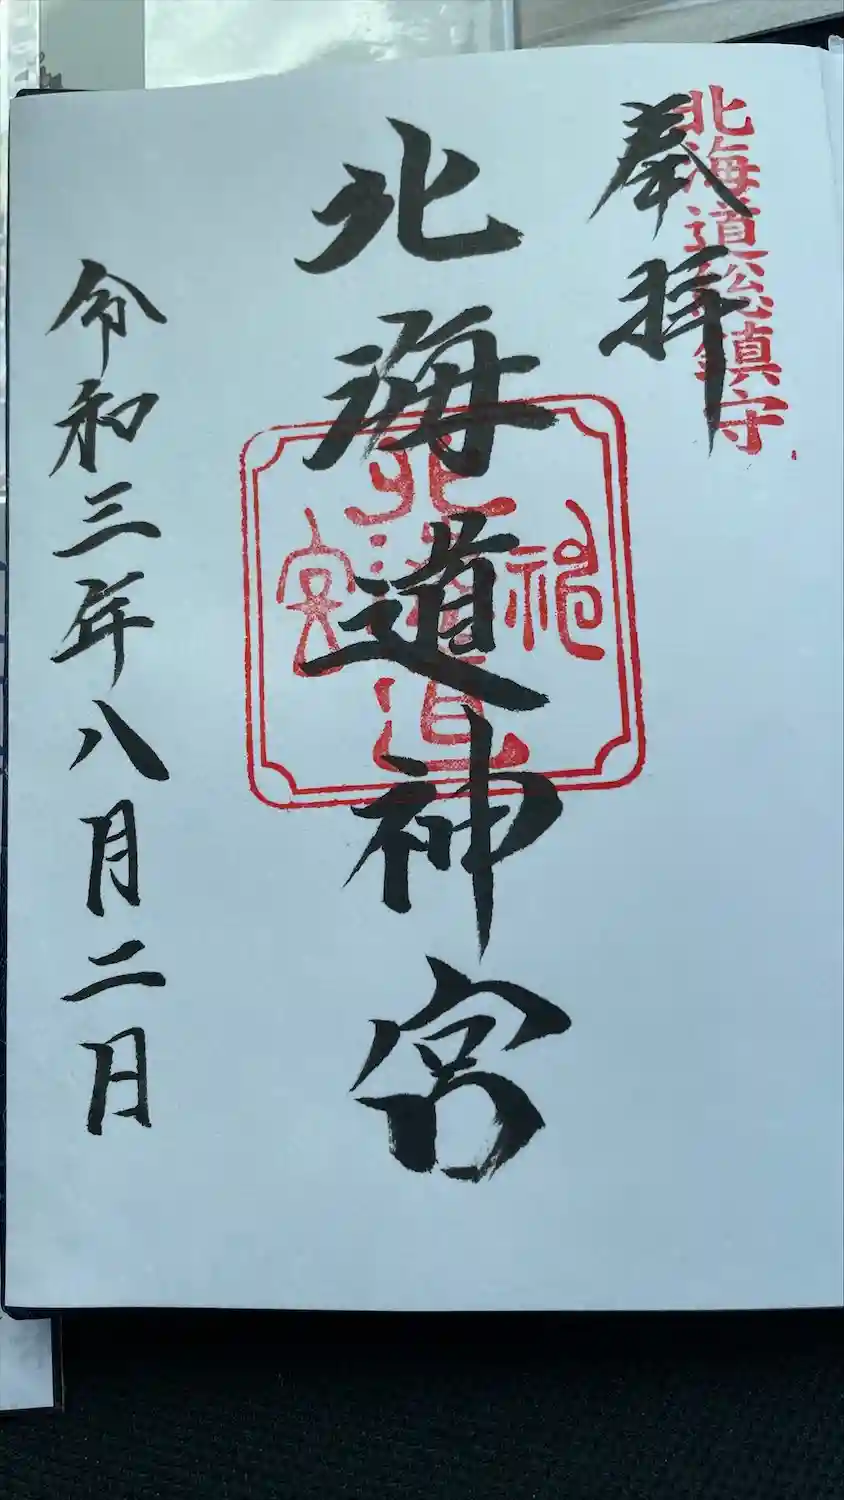 北海道総鎮守
奉拝
北海道神宮
神
北海道
宮
令和三年八月二日